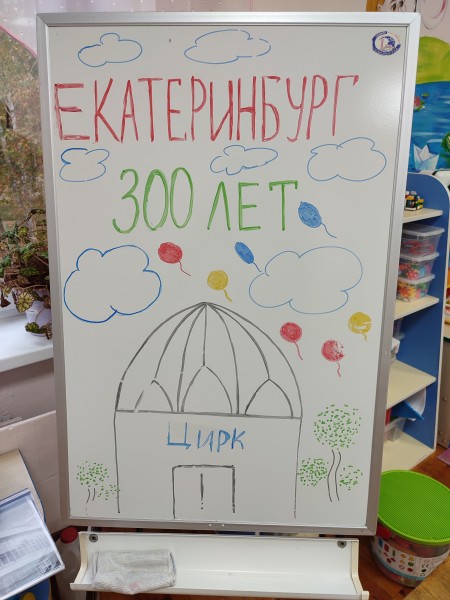 ЕКАТЕРИНБУРГ
300 ЛЕТ
ЦИРК